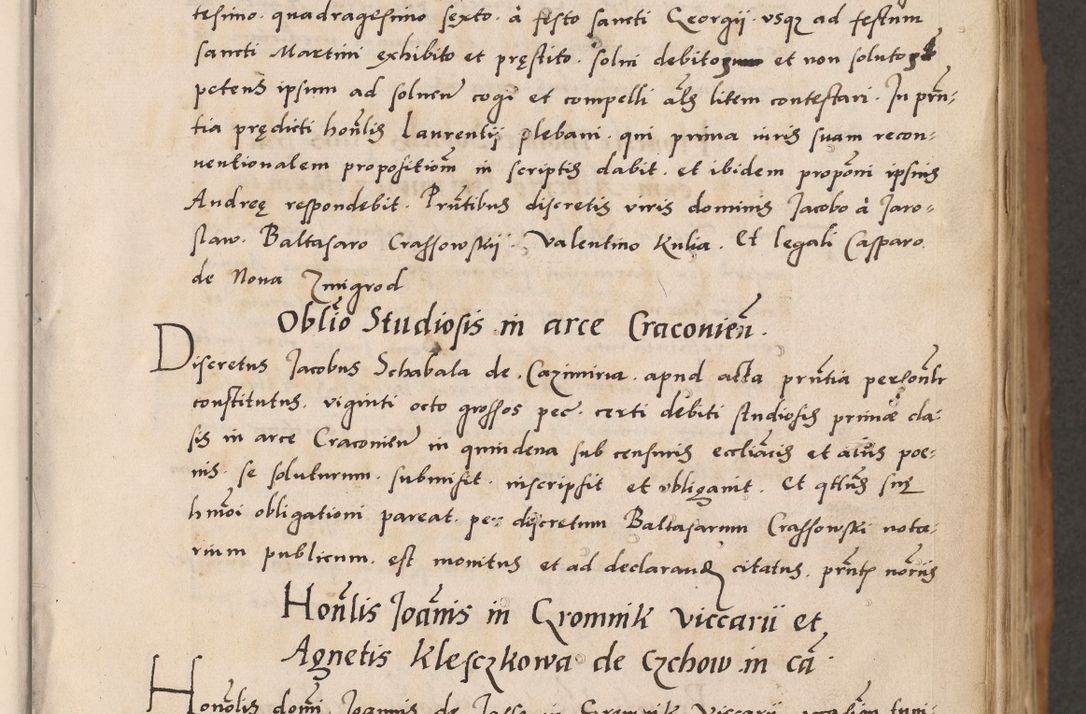 tesimo. quadragesimo sexto. à festo sancti Georgij. vsqꝫ ad festum
sancti Martini exhibito et pręstito. solui debitoꝝ et non solutoꝝ
petens ipsum ad soluen̄ cogi et compelli al̃s litem contestari. In prn̄-
tia prędicti hon̄lis Laurentij plebani. qui prima iuris suam recon=
uentionalem propositiom̄ in scriptis dabit. et ibidem propōni ipsius
Andreę respondebit. Prn̄tibus discretis viris dominis Jacobo à Jaro=
slaw. Baltasaro Crassowskij. Valentino Kulia. Et legali Casparo
de Noua Zmigrod
Oblīo Studiosis in arce Craconien̄.
Discretus Jacobus Schabala de. Cazimiria. apud acta prn̄tia personl̄r
constitutus. viginti octo grossos pec. certi debiti studiosis primæ cla-
sis in arce Craconien̄ in quindena sub censuris eccliācis et alijs poe=
nis. se soluturum. submisit. inscripsit et obligauit. Et qtūs suę
hm̄oi obligationi pareat. per discretum Baltasarum Crassowski nota-
rium publicum. est monitus et ad declarandꝝ citatus. prn̄te nor̄ijs
Hon̄lis Joān̄is in Gromnik viccarij et
Agnetis Klesczkowa de Czchow in cā.
Honōlis domī Joannis de Jasso in Gromnik Viccarij